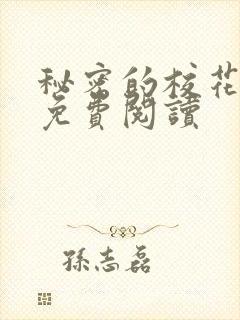 秘密的校花
免費閱讀
孫志磊